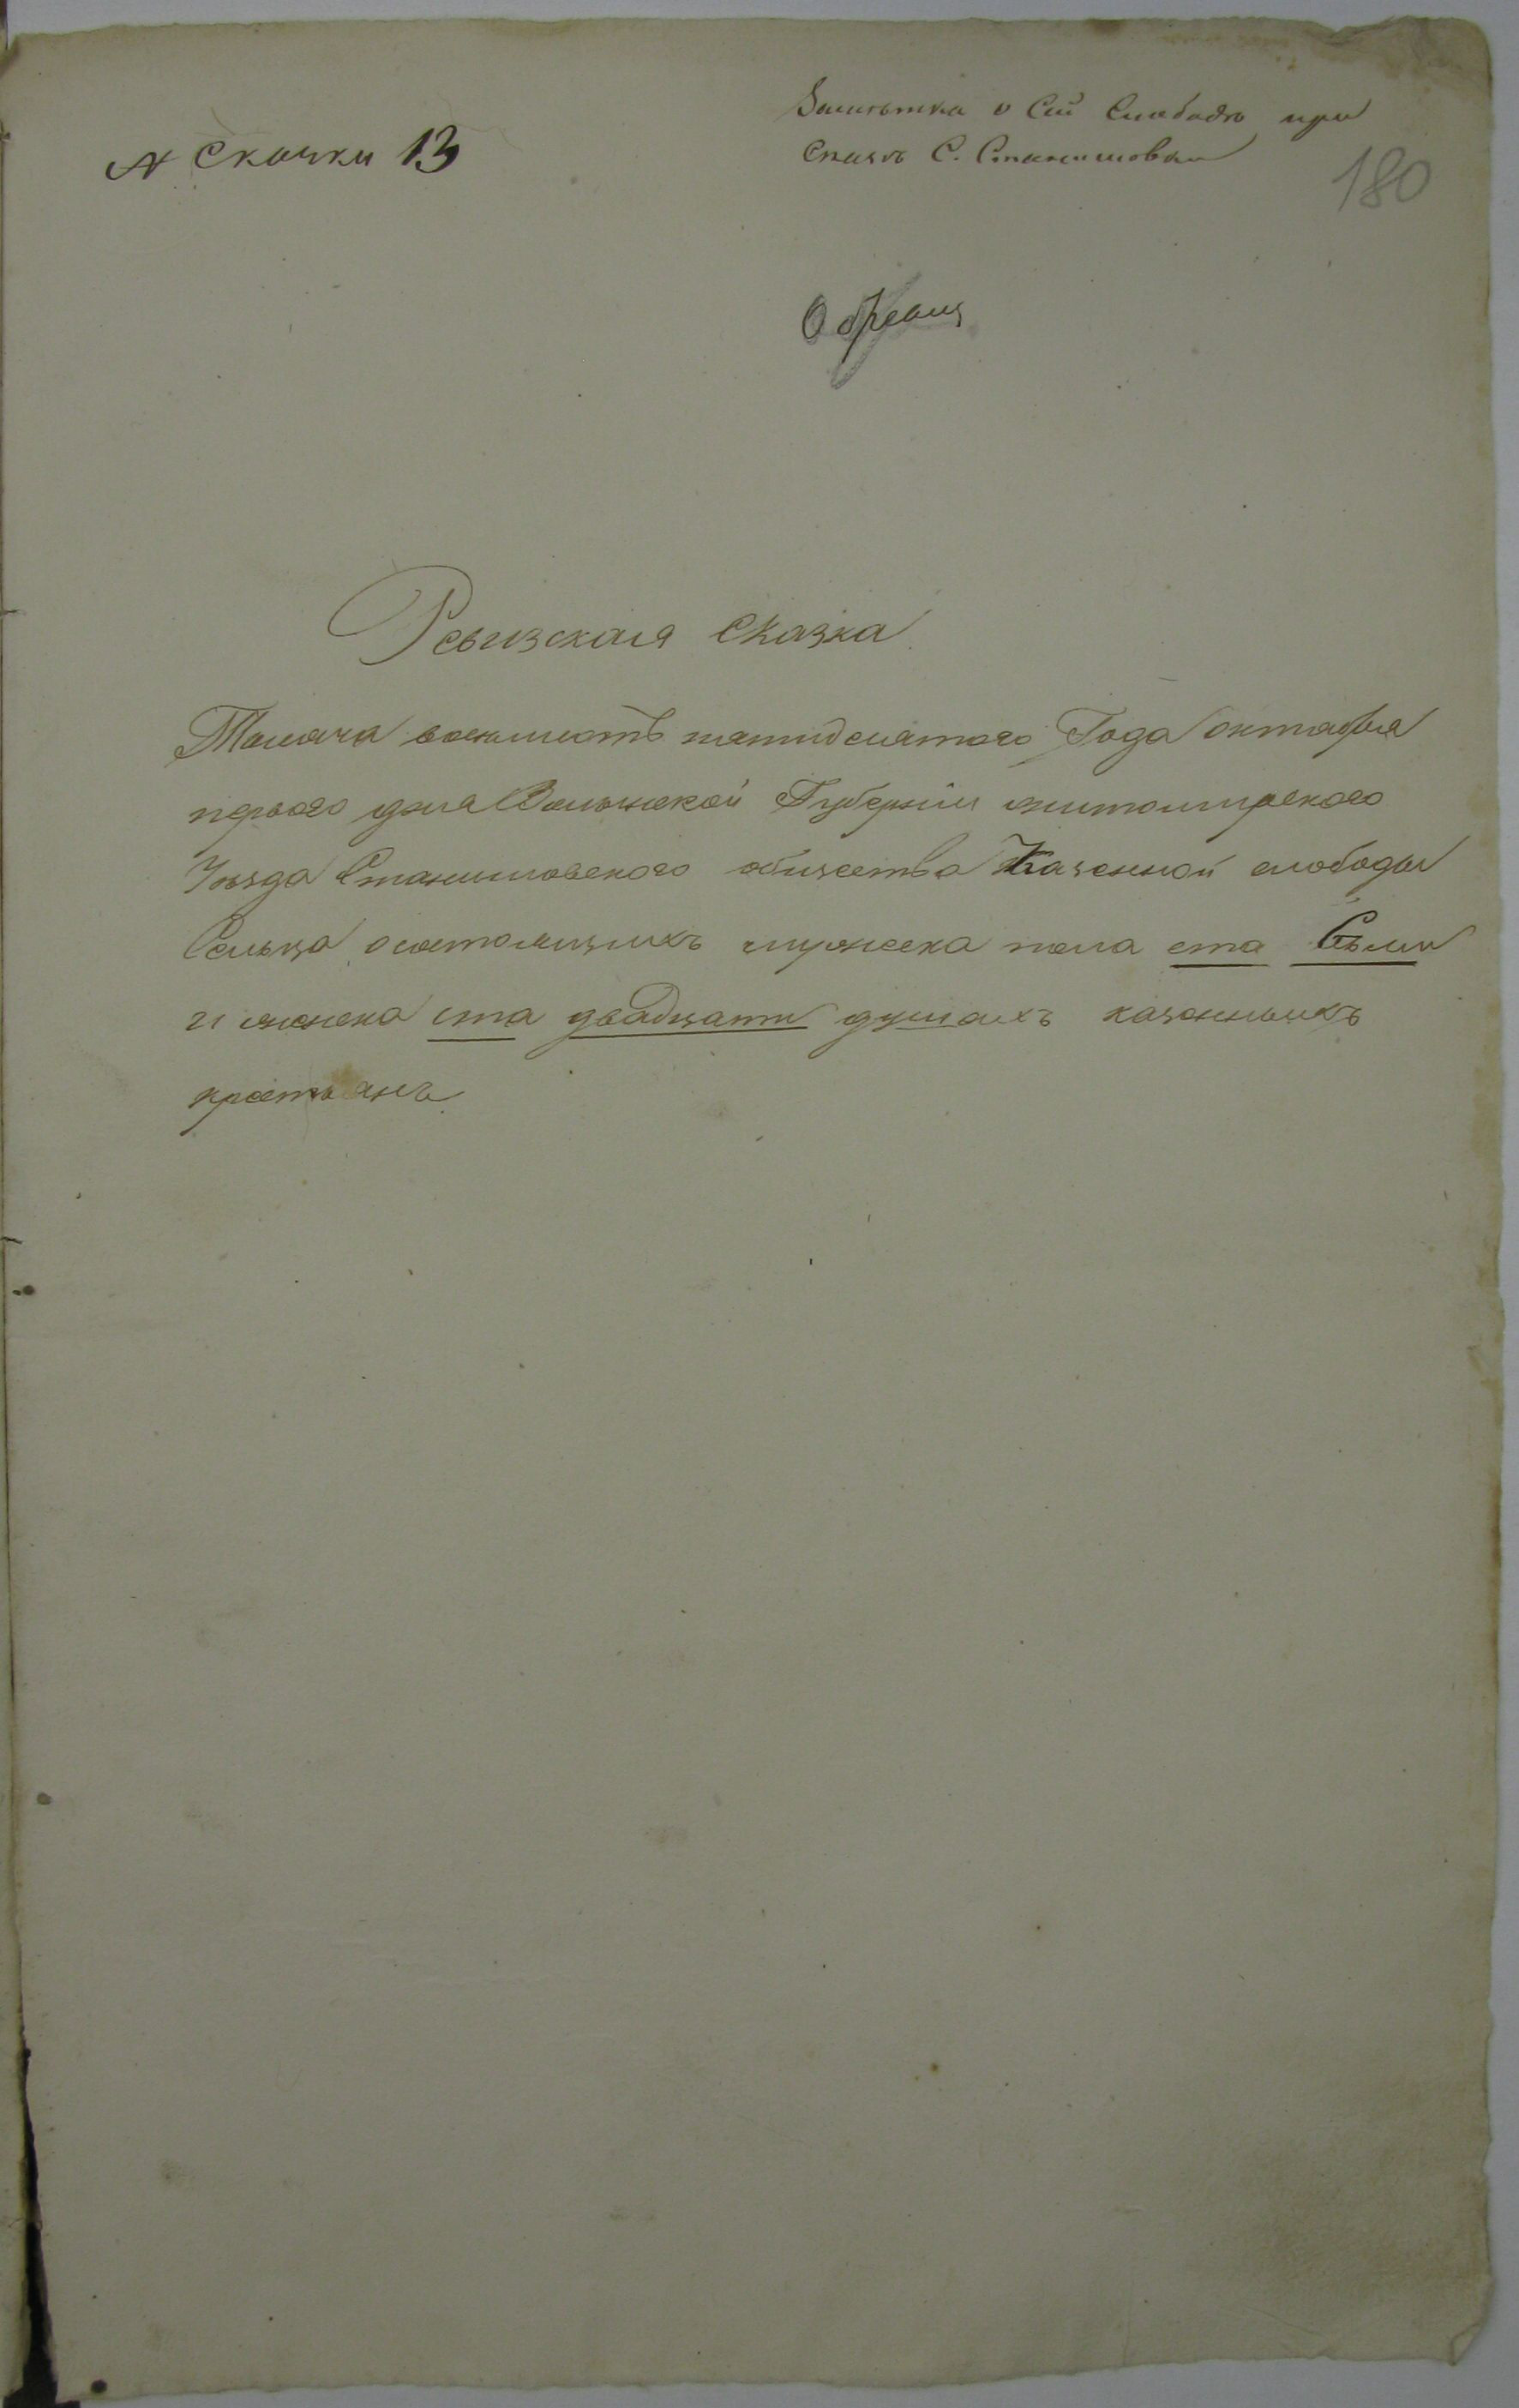 N Сказки 13
Замѣтка о Сей Слободѣ при
Сказкѣ С. Станишовки
180
Образец
Ревизская Сказка
Тысяча восемьсотъ пятидесятого Года октября
первого дня Волынской Губерніи житомирского
Уѣзда Станишовского общества Казенной слободы
Сельца осостоящихъ мужеска пола ста Сѣми
и женска ста двадцати душахъ казенныхъ
крестьянъ